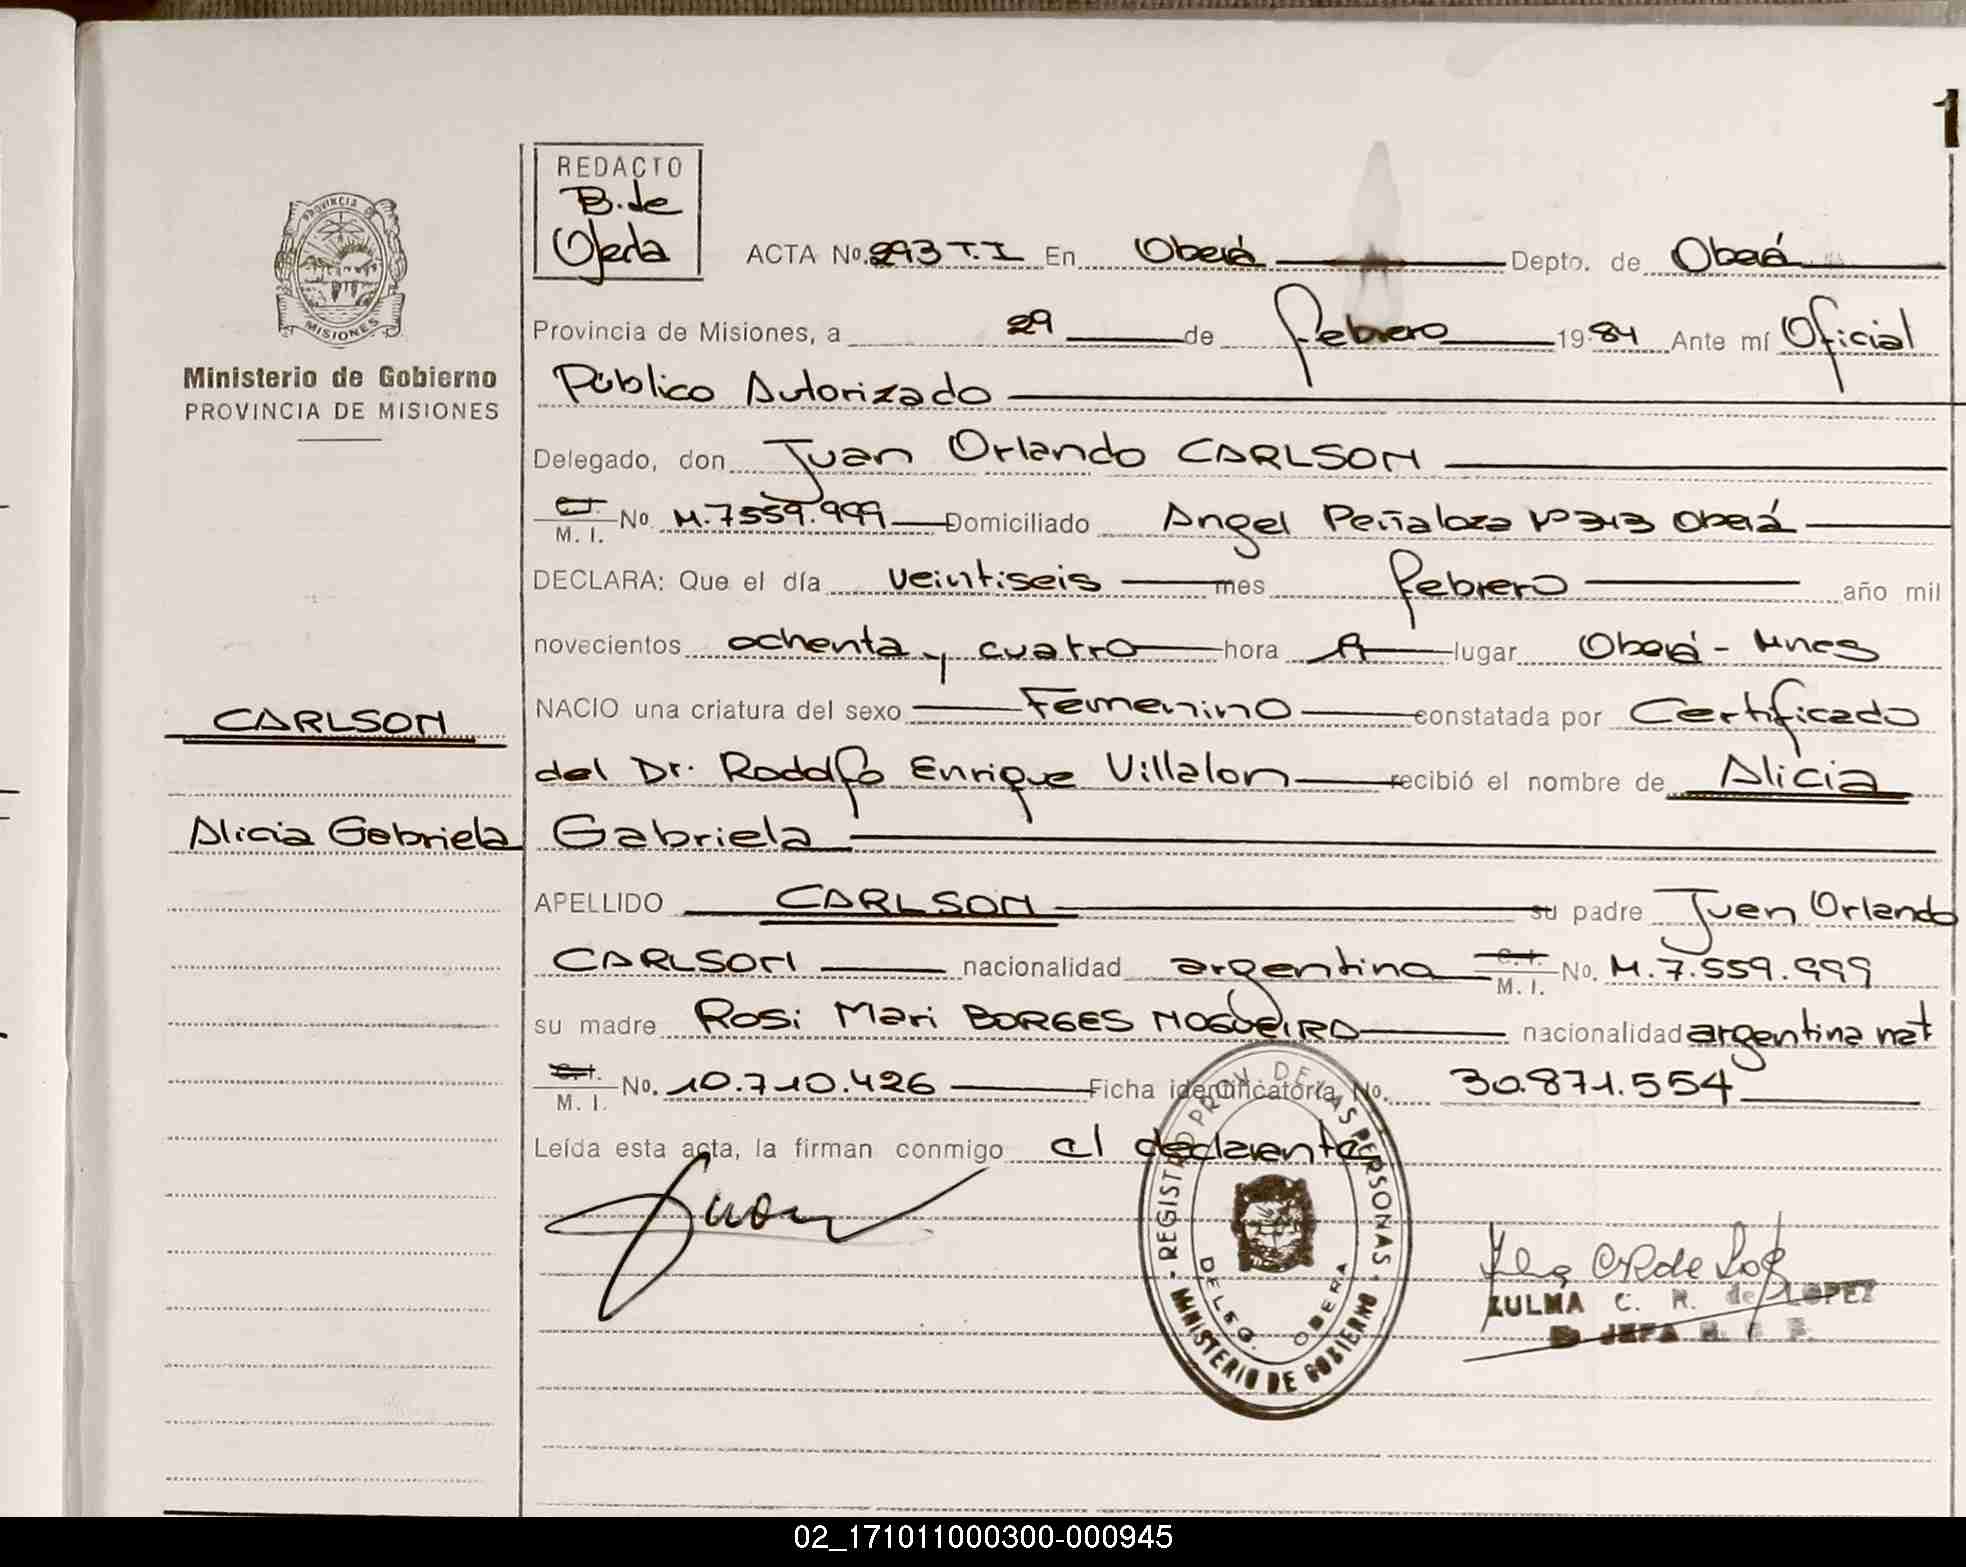 1
REDACTO
B. de
Ojeda
PROVINCIA DE
MISIONES
Ministerio de Gobierno
PROVINCIA DE MISIONES
ACTA No. 293 T.I En Oberá Depto. de Oberá
Provincia de Misiones, a 29 de febrero 1984 Ante mí Oficial
Público Autorizado
Delegado, don Juan Orlando CARLSON
C.I.
M. I. No M.7559.999 Domiciliado Angel Peñaloza Nº 313 Oberá
DECLARA: Que el día veintiseis mes febrero año mil
novecientos ochenta y cuatro hora 1 lugar Oberá - Mnes
NACIO una criatura del sexo Femenino constatada por Certificado
del Dr. Rodolfo Enrique Villalon recibió el nombre de Alicia
Gabriela
CARLSON
Alicia Gabriela
APELLIDO CARLSON su padre Juan Orlando
CARLSON nacionalidad argentina C.I. M. I. No. M.7.559.999
su madre Rosi Mari BORGES NOGUEIRA nacionalidad argentina nat
C.I. M. I. No. 10.710.426 Ficha identificatoria No. 30.871.554
Leída esta acta, la firman conmigo el declarante
REGISTRO PROV. DE LAS PERSONAS
DELEG. OBERA
MINISTERIO DE GOBIERNO
ZULMA C. R. de LOPEZ
JEFA
02_171011000300-000945